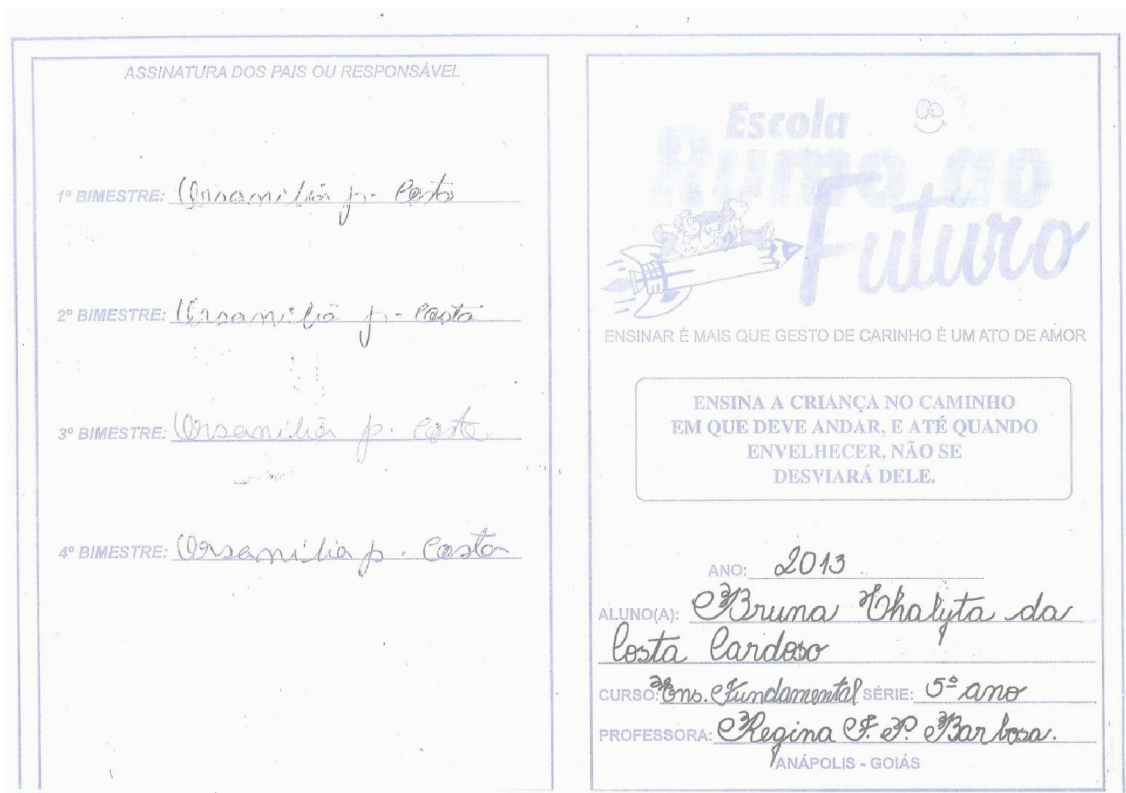 ASSINATURA DOS PAIS OU RESPONSÁVEL
1º BIMESTRE: Orsamilia p. Costa
2º BIMESTRE: Orsamilia p. Costa
3º BIMESTRE: Orsamilia p. Costa
4º BIMESTRE: Orsamilia p. Costa
Escola
Rumo ao
Futuro
ENSINAR É MAIS QUE GESTO DE CARINHO É UM ATO DE AMOR
ENSINA A CRIANÇA NO CAMINHO
EM QUE DEVE ANDAR, E ATÉ QUANDO
ENVELHECER, NÃO SE
DESVIARÁ DELE.
ANO: 2013
ALUNO(A): Bruna Thalyta da
Costa Cardoso
CURSO: Ens. Fundamental SÉRIE: 5º ano
PROFESSORA: Regina F. P. Barbosa.
ANÁPOLIS - GOIÁS